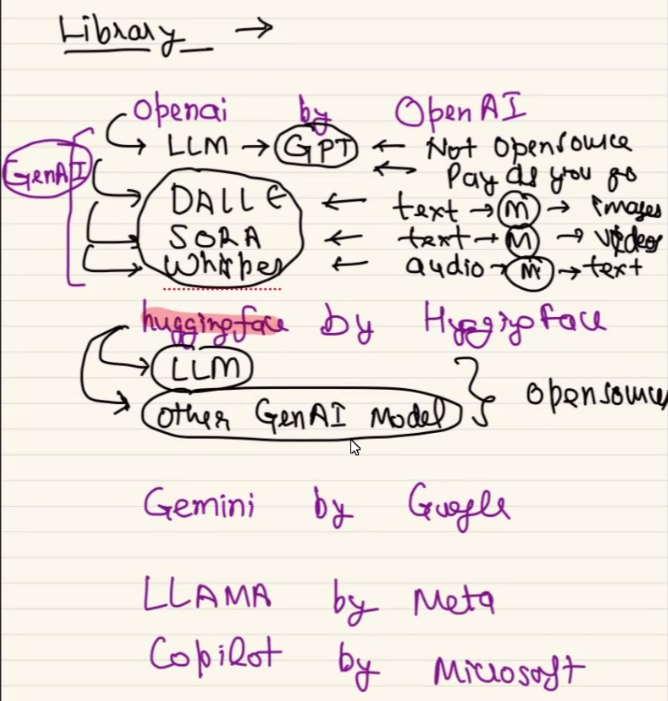 Library →
Openai by OpenAI
GenAI
LLM → GPT ← Not Opensource
← Pay as you go
DALLE ← text → M → images
SORA ← text → M → videos
Whisper ← audio → M → text
huggingface by Huggingface
LLM
Other GenAI Model } opensource
Gemini by Google
LLAMA by Meta
Copilot by Microsoft